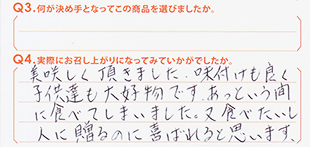 Q3.何が決め手となってこの商品を選びましたか。
Q4.実際にお召し上がりになってみていかがでしたか。
美味しく頂きました。味付けも良く
子供達も大好物です。あっという間
に食べてしまいました。又食べたいし
人に贈るのに喜ばれると思います。